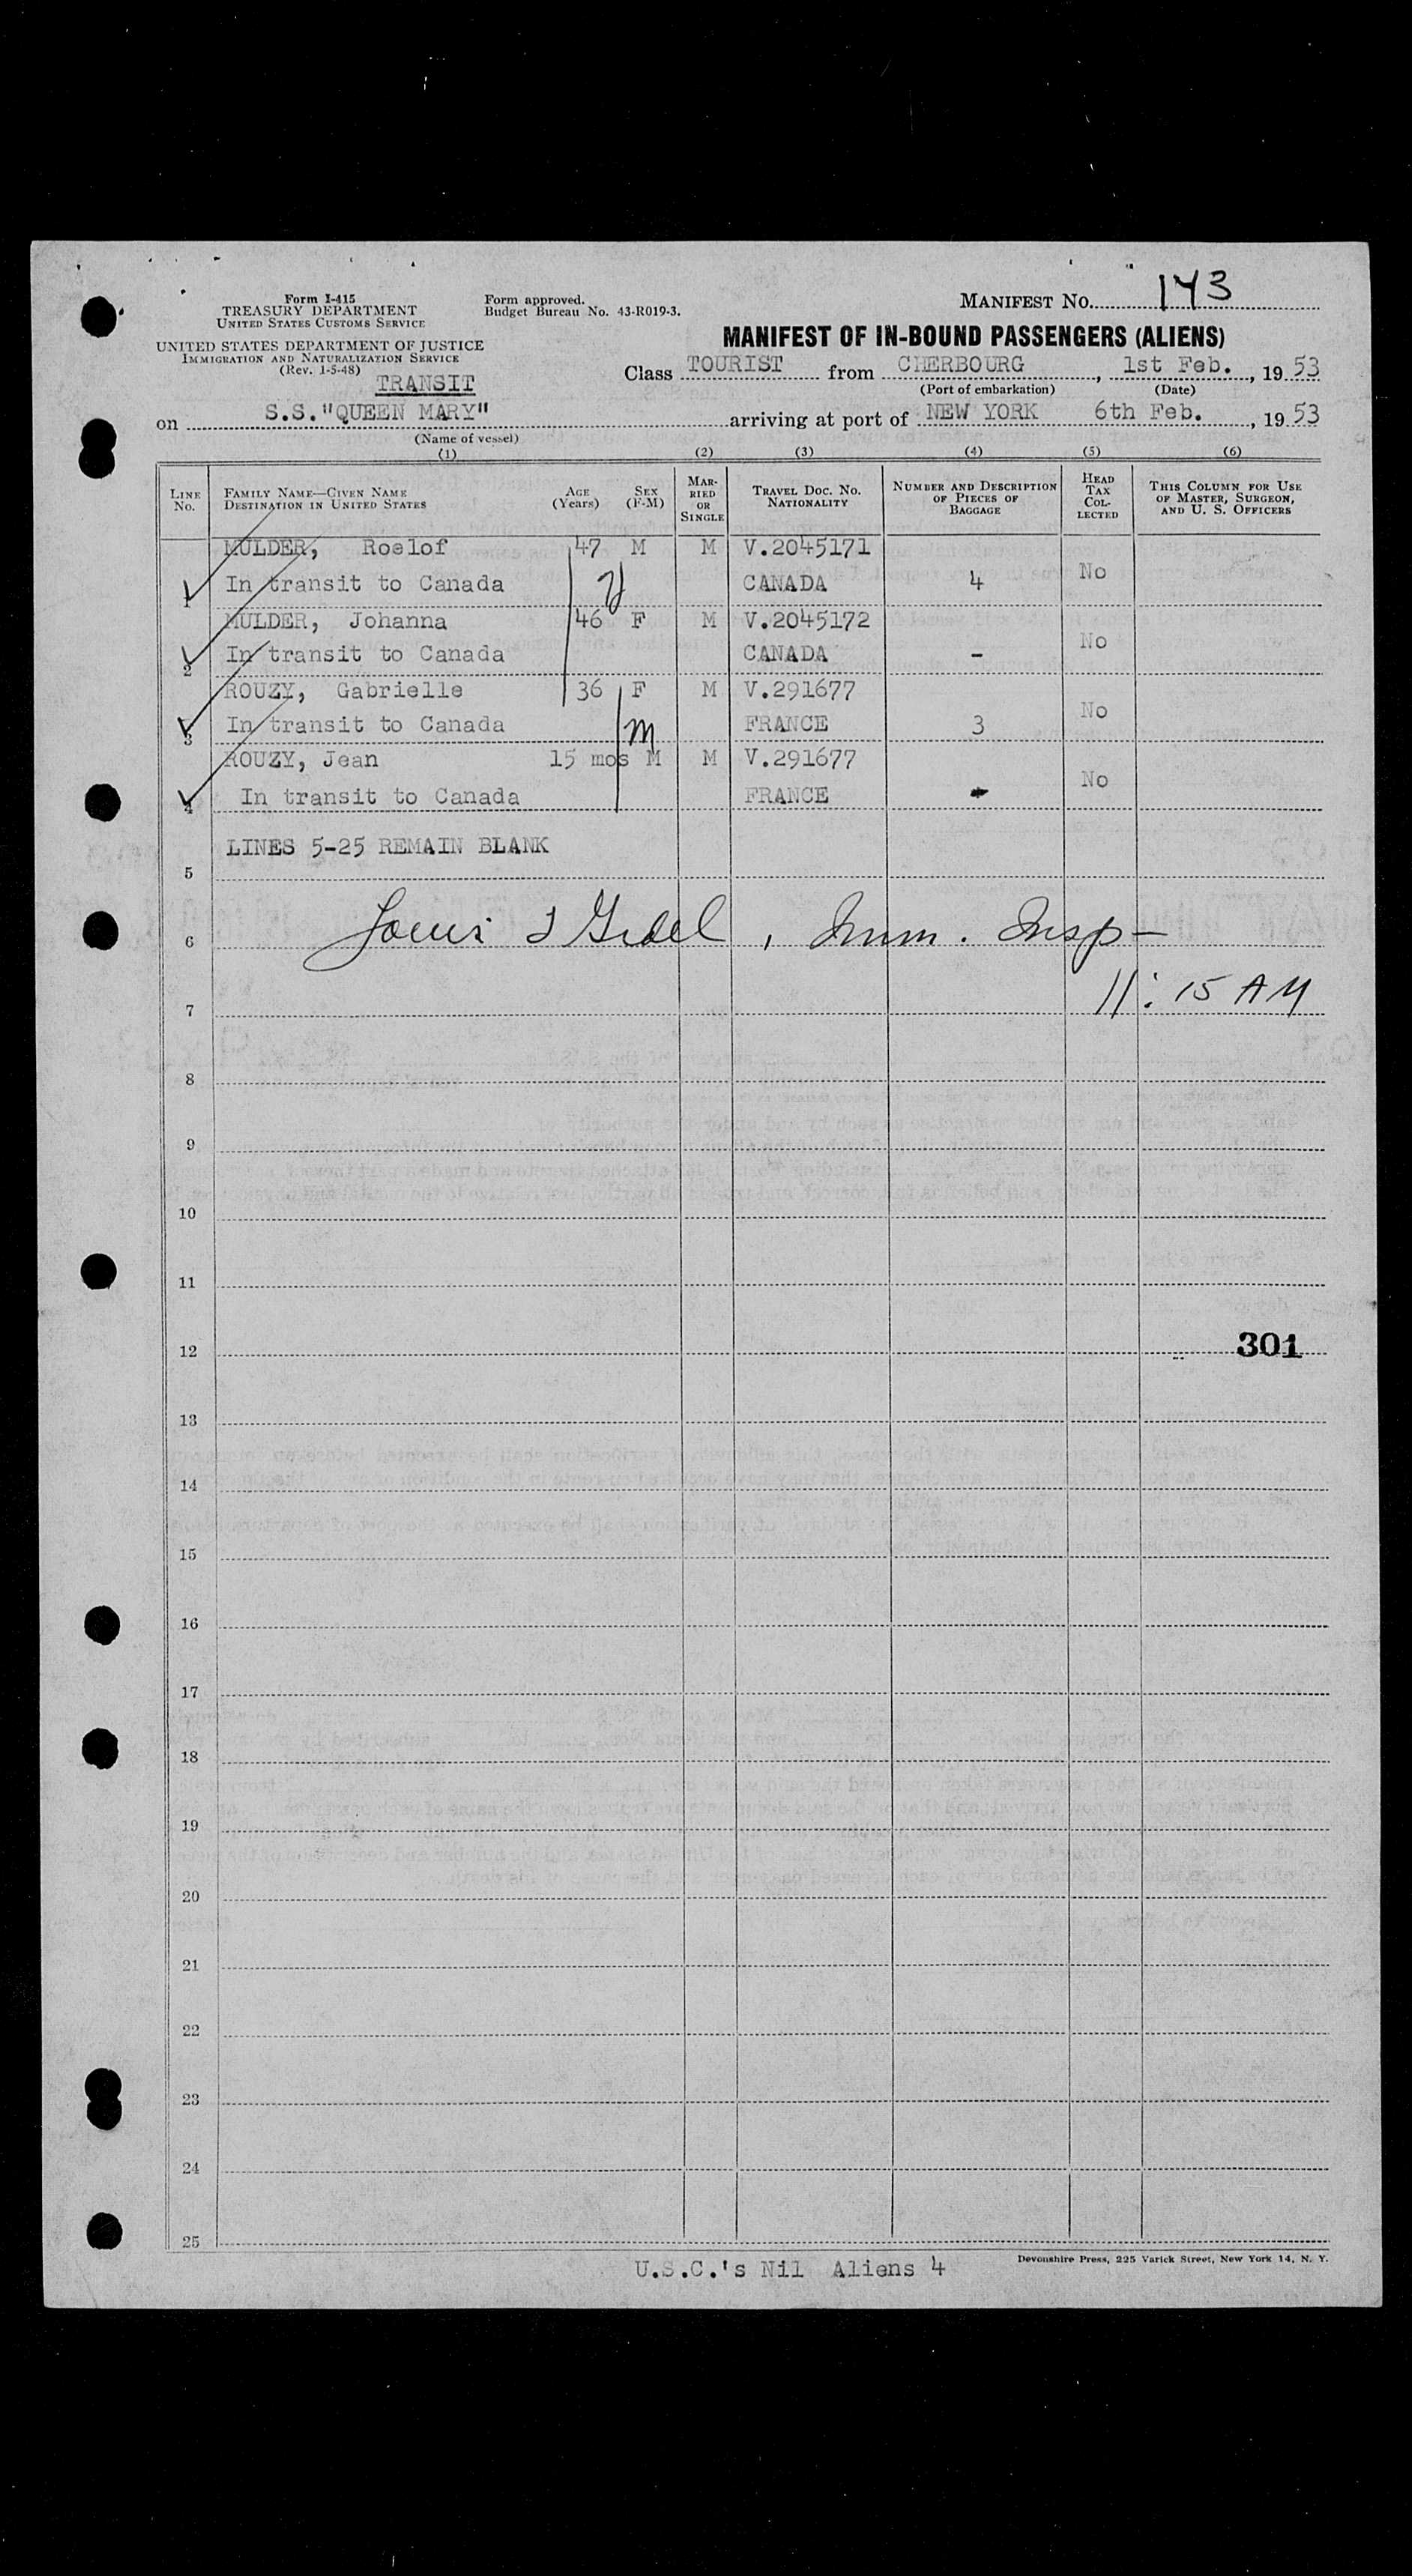 Form I-415
TREASURY DEPARTMENT
UNITED STATES CUSTOMS SERVICE
UNITED STATES DEPARTMENT OF JUSTICE
IMMIGRATION AND NATURALIZATION SERVICE
(Rev. 1-5-48)
TRANSIT
Form approved.
Budget Bureau No. 43-R019-3.
MANIFEST NO. 143
MANIFEST OF IN-BOUND PASSENGERS (ALIENS)
Class TOURIST from CHERBOURG, 1st Feb., 19 53
(Port of embarkation) (Date)
on S.S."QUEEN MARY" arriving at port of NEW YORK 6th Feb., 19 53
(Name of vessel)
(1) (2) (3) (4) (5) (6)
LINE NO. FAMILY NAME—GIVEN NAME DESTINATION IN UNITED STATES AGE (YEARS) SEX (F-M) MARRIED OR SINGLE TRAVEL DOC. NO. NATIONALITY NUMBER AND DESCRIPTION OF PIECES OF BAGGAGE HEAD TAX COLLECTED THIS COLUMN FOR USE OF MASTER, SURGEON, AND U. S. OFFICERS
MULDER, Roelof 47 M M V.2045171
1 In transit to Canada CANADA 4 No
MULDER, Johanna 46 F M V.2045172
2 In transit to Canada CANADA - No
ROUZY, Gabrielle 36 F M V.291677
3 In transit to Canada m FRANCE 3 No
ROUZY, Jean 15 mos M M V.291677
4 In transit to Canada FRANCE No
LINES 5-25 REMAIN BLANK
5
6 Louis, Imm. Insp-
7 11:15 AM
8
9
10
11
12 301
13
14
15
16
17
18
19
20
21
22
23
24
25
U.S.C.'s Nil Aliens 4
Devonshire Press, 225 Varick Street, New York 14, N. Y.